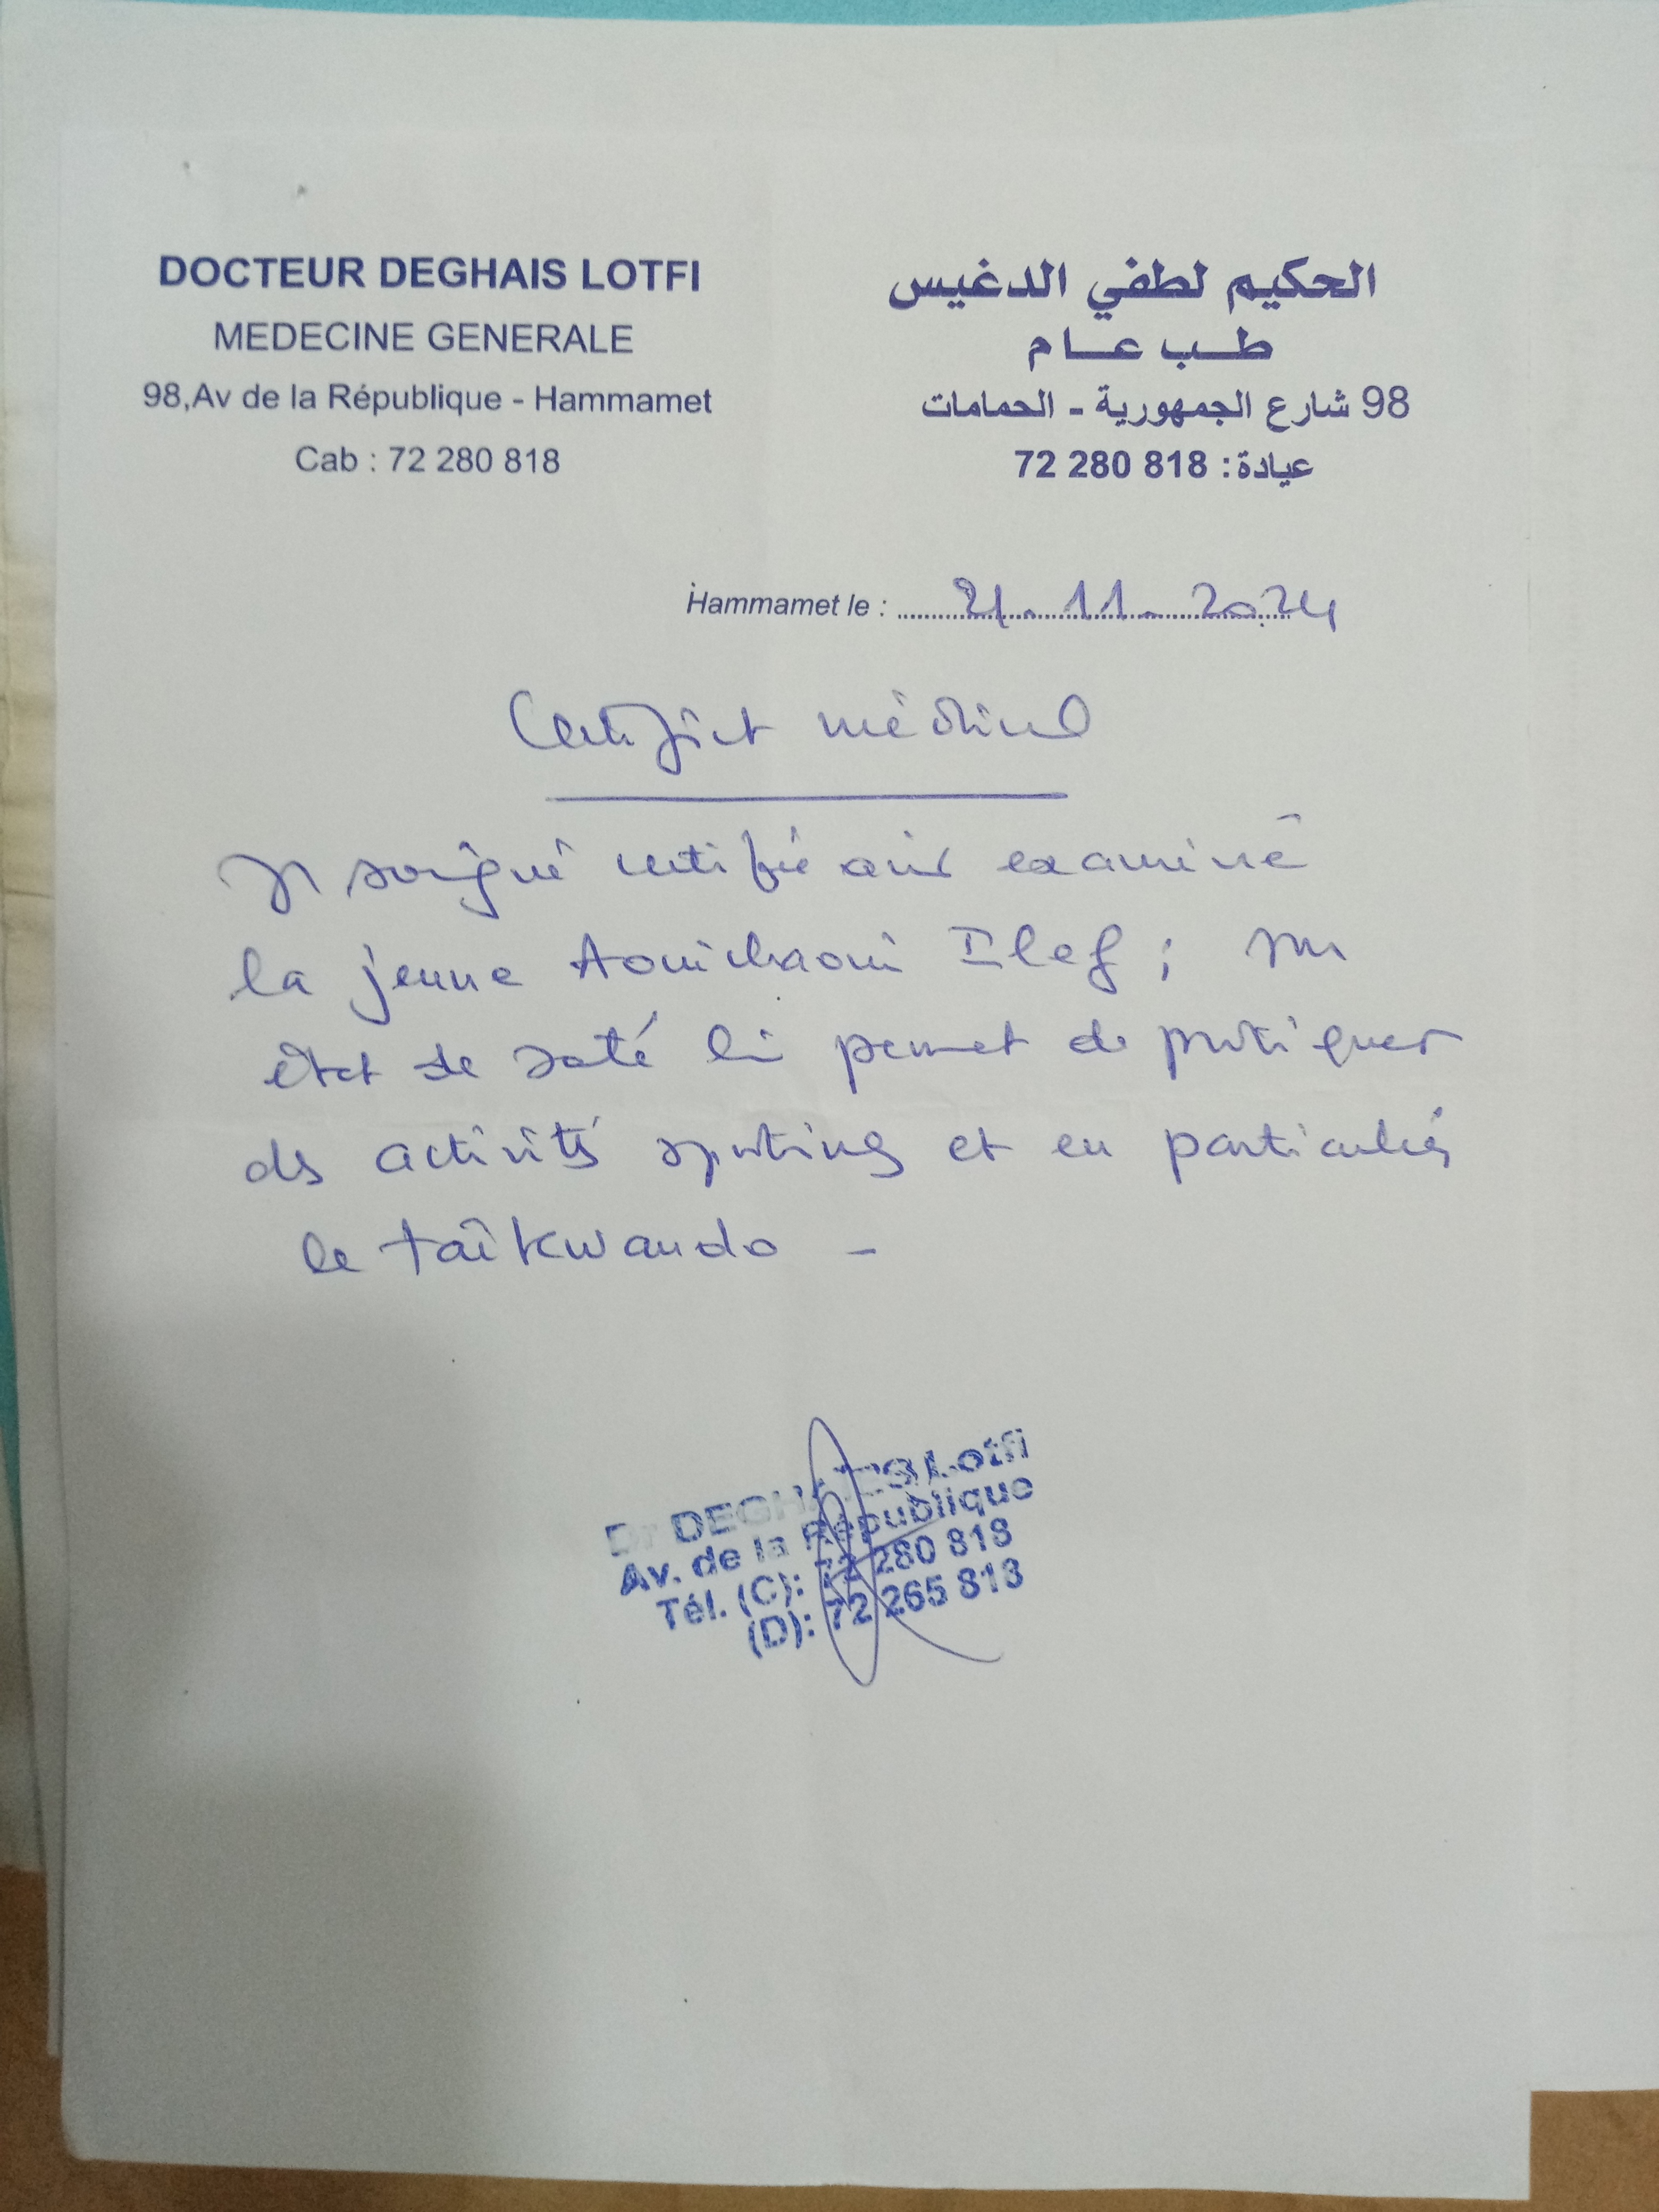 DOCTEUR DEGHAIS LOTFI
MEDECINE GENERALE
98,Av de la République - Hammamet
Cab : 72 280 818
الحكيم لطفي الدغيس
طب عام
98 شارع الجمهورية - الحمامات
عيادة: 72 280 818
Hammamet le : 21.11.2024
Certificat médical
Je soigné certifie avoir examiné
la jeune Aouichaoui Ilef ; son
état de santé lui permet de pratiquer
des activités sportives et en particulier
le taîkwando -
Dr DEGHAIES Lotfi
Av. de la République
Tél. (C): 72 280 818
(D): 72 265 813